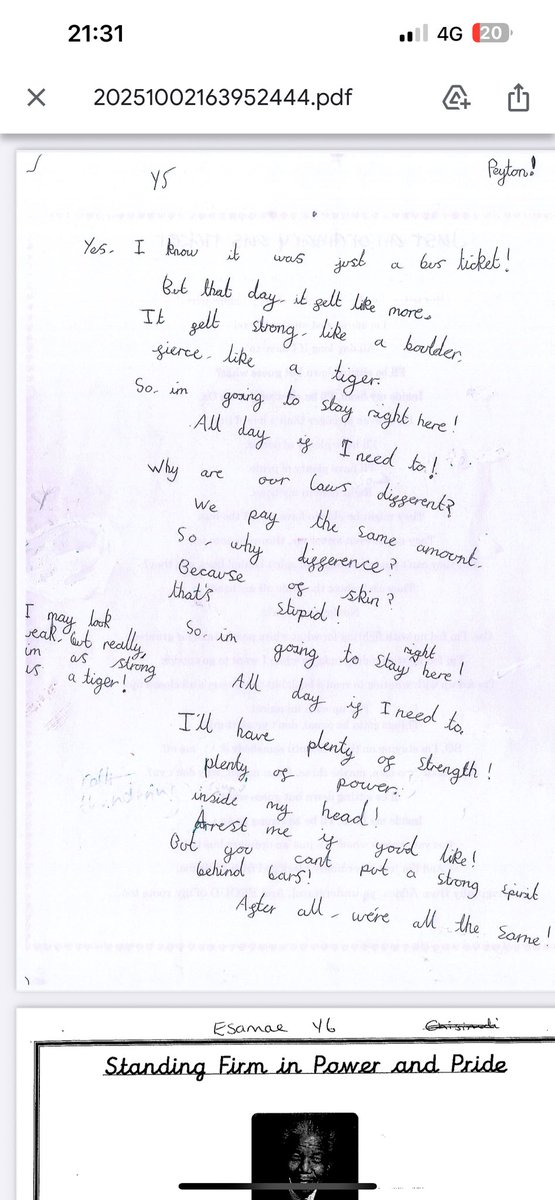 21:31
4G
20
20251002163952444.pdf
Y5
Peyton!
Yes. I know it was just a bus ticket!
But that day it felt like more.
It felt strong. like a boulder.
fierce. like a tiger.
So. im going to stay right here!
All day if I need to!
Why are our laws different?
We pay the same amount.
So. why difference?
Because of skin?
that's stupid!
So. im going to stay right here!
All day if I need to.
I may look
weak. but really,
im as strong
as a tiger!
I'll have plenty of strength!
plenty of power.
inside my head!
Arrest me if you'd like!
But you cant put a strong spirit
behind bars!
After all - we're all the same!
Esamae Y6
Standing Firm in Power and Pride